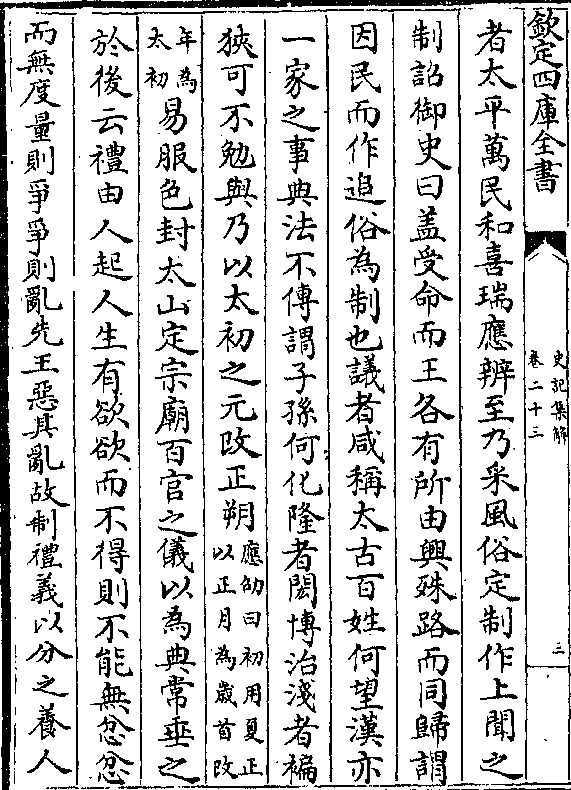 欽定四庫全書
史記集解
卷二十三
三
者太平萬民和喜瑞應辨至乃采風俗定制作上聞之
制詔御史曰盖受命而王各有所由興殊路而同歸謂
因民而作追俗為制也議者咸稱太古百姓何望漢亦
一家之事典法不傳謂子孫何化隆者閎博治淺者褊
狹可不勉與乃以太初之元改正朔應劭曰初用夏正以正月為歲首改
年為太初易服色封太山定宗廟百官之儀以為典常垂之
於後云禮由人起人生有欲欲而不得則不能無忿忿
而無度量則爭爭則亂先王惡其亂故制禮義以分之養人